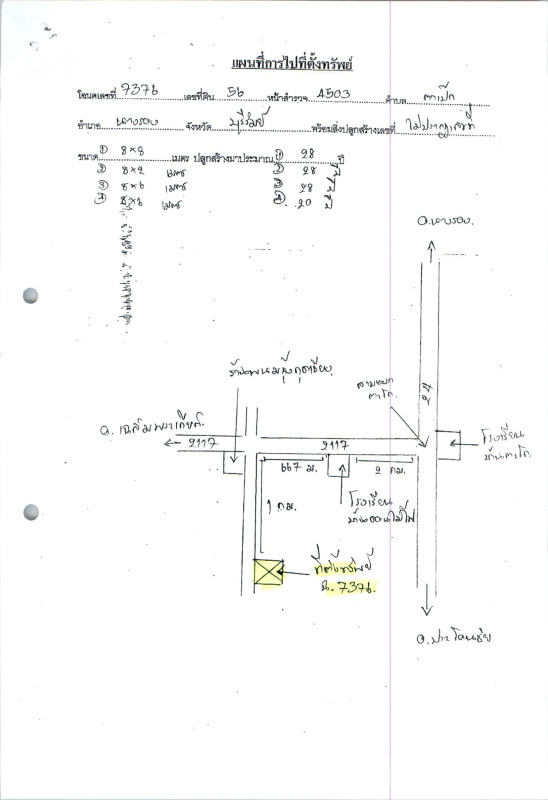 แผนที่การไปที่ตั้งทรัพย์
โฉนดเลขที่ 7376 เลขที่ดิน 56 หน้าสำรวจ 4503 ตำบล ตาเป๊ก
อำเภอ นางรอง จังหวัด บุรีรัมย์ พร้อมสิ่งปลูกสร้างเลขที่ ไม่ปรากฏเลขที่
ขนาด ① 8×8 เมตร ปลูกสร้างมาประมาณ ① 28 ปี
② 8×2 เมตร ② 28 ปี
③ 8×6 เมตร ③ 28 ปี
④ เมตร ④ 20 ปี
อ.นางรอง.
24
สามแยก
ตาโก.
อ. เฉลิมพระเกียรติ.
2117
2117
โรงเรียน
บ้านตาโก.
667 ม.
2 กม.
1 กม.
โรงเรียน
ที่ตั้งทรัพย์
ฉ. 7376.
อ.ประโคนชัย